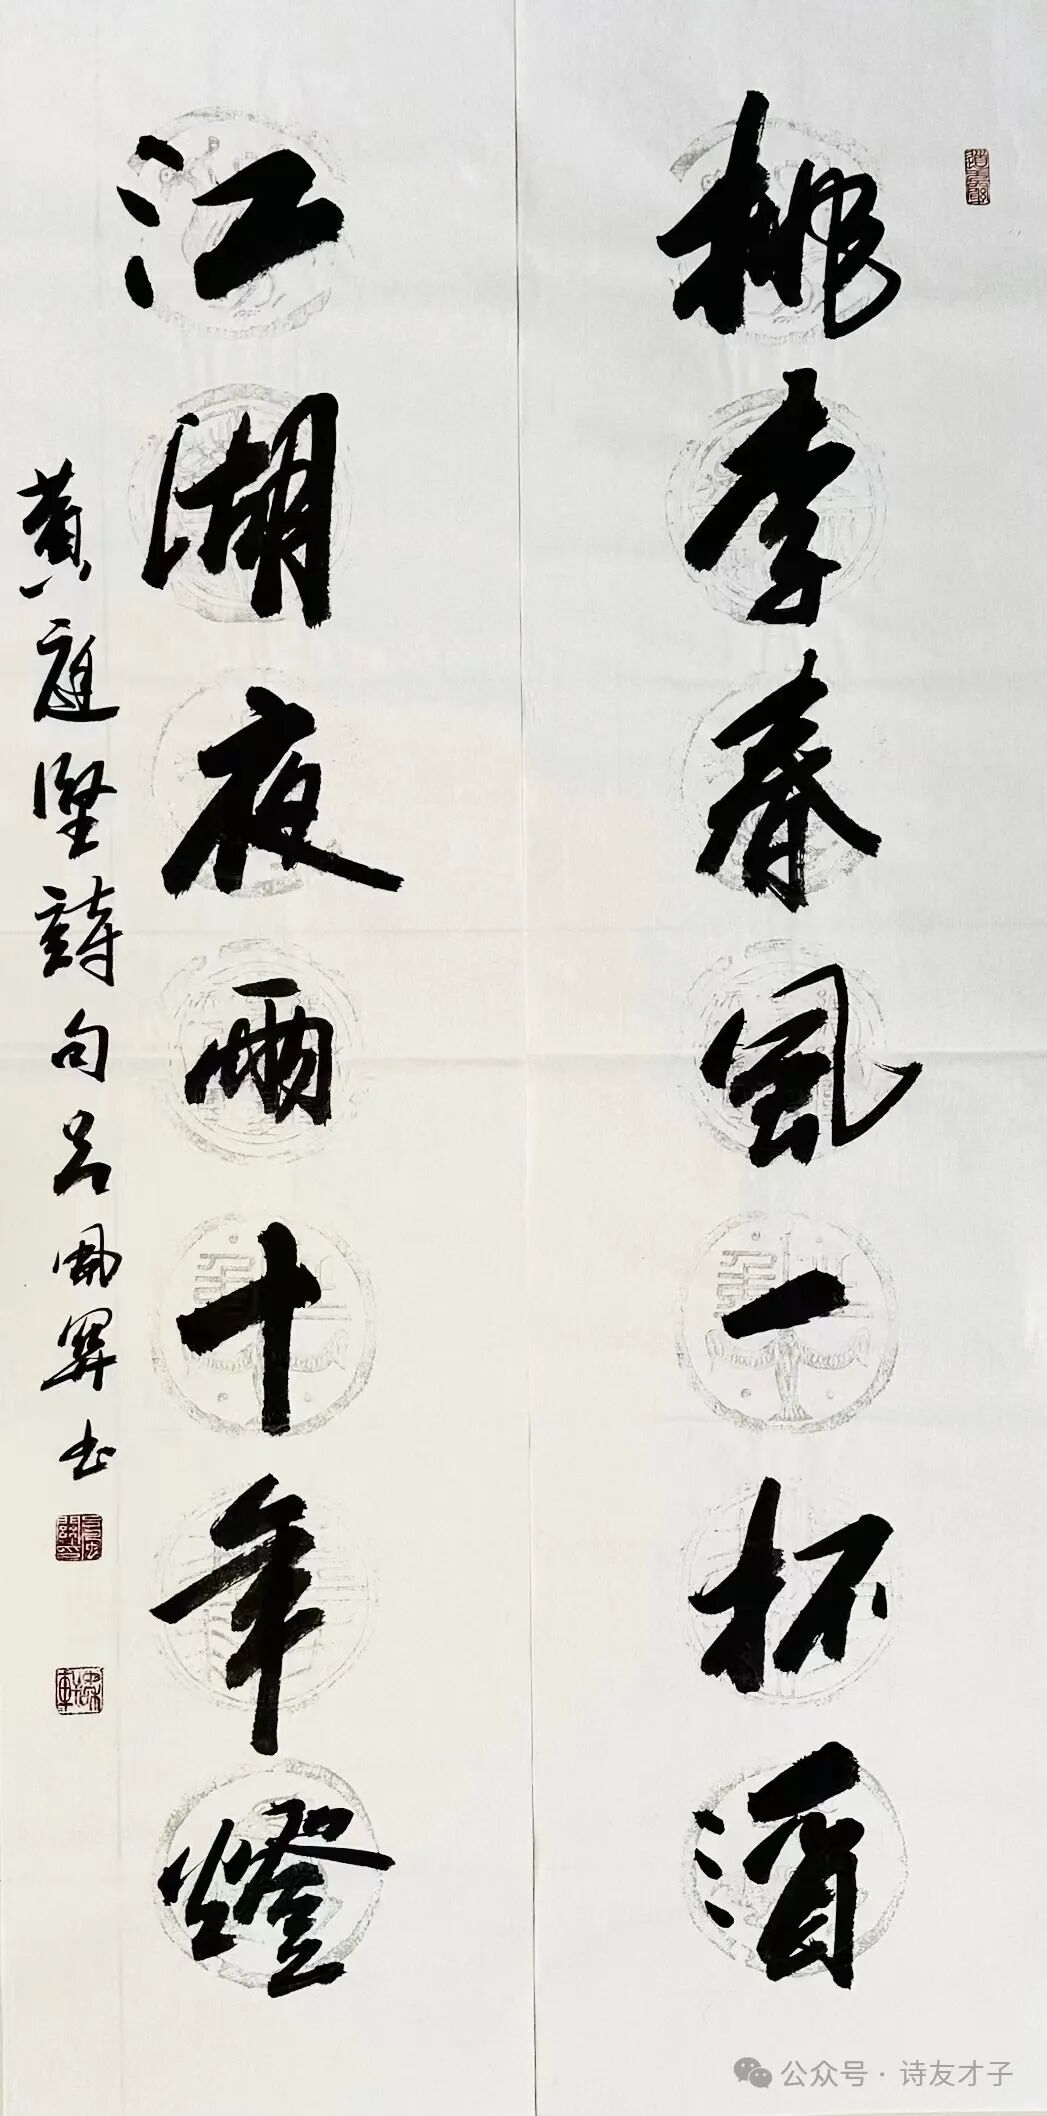 桃李春風一杯酒
江湖夜雨十年燈
黄庭堅詩句呂風
公众号·诗友才子